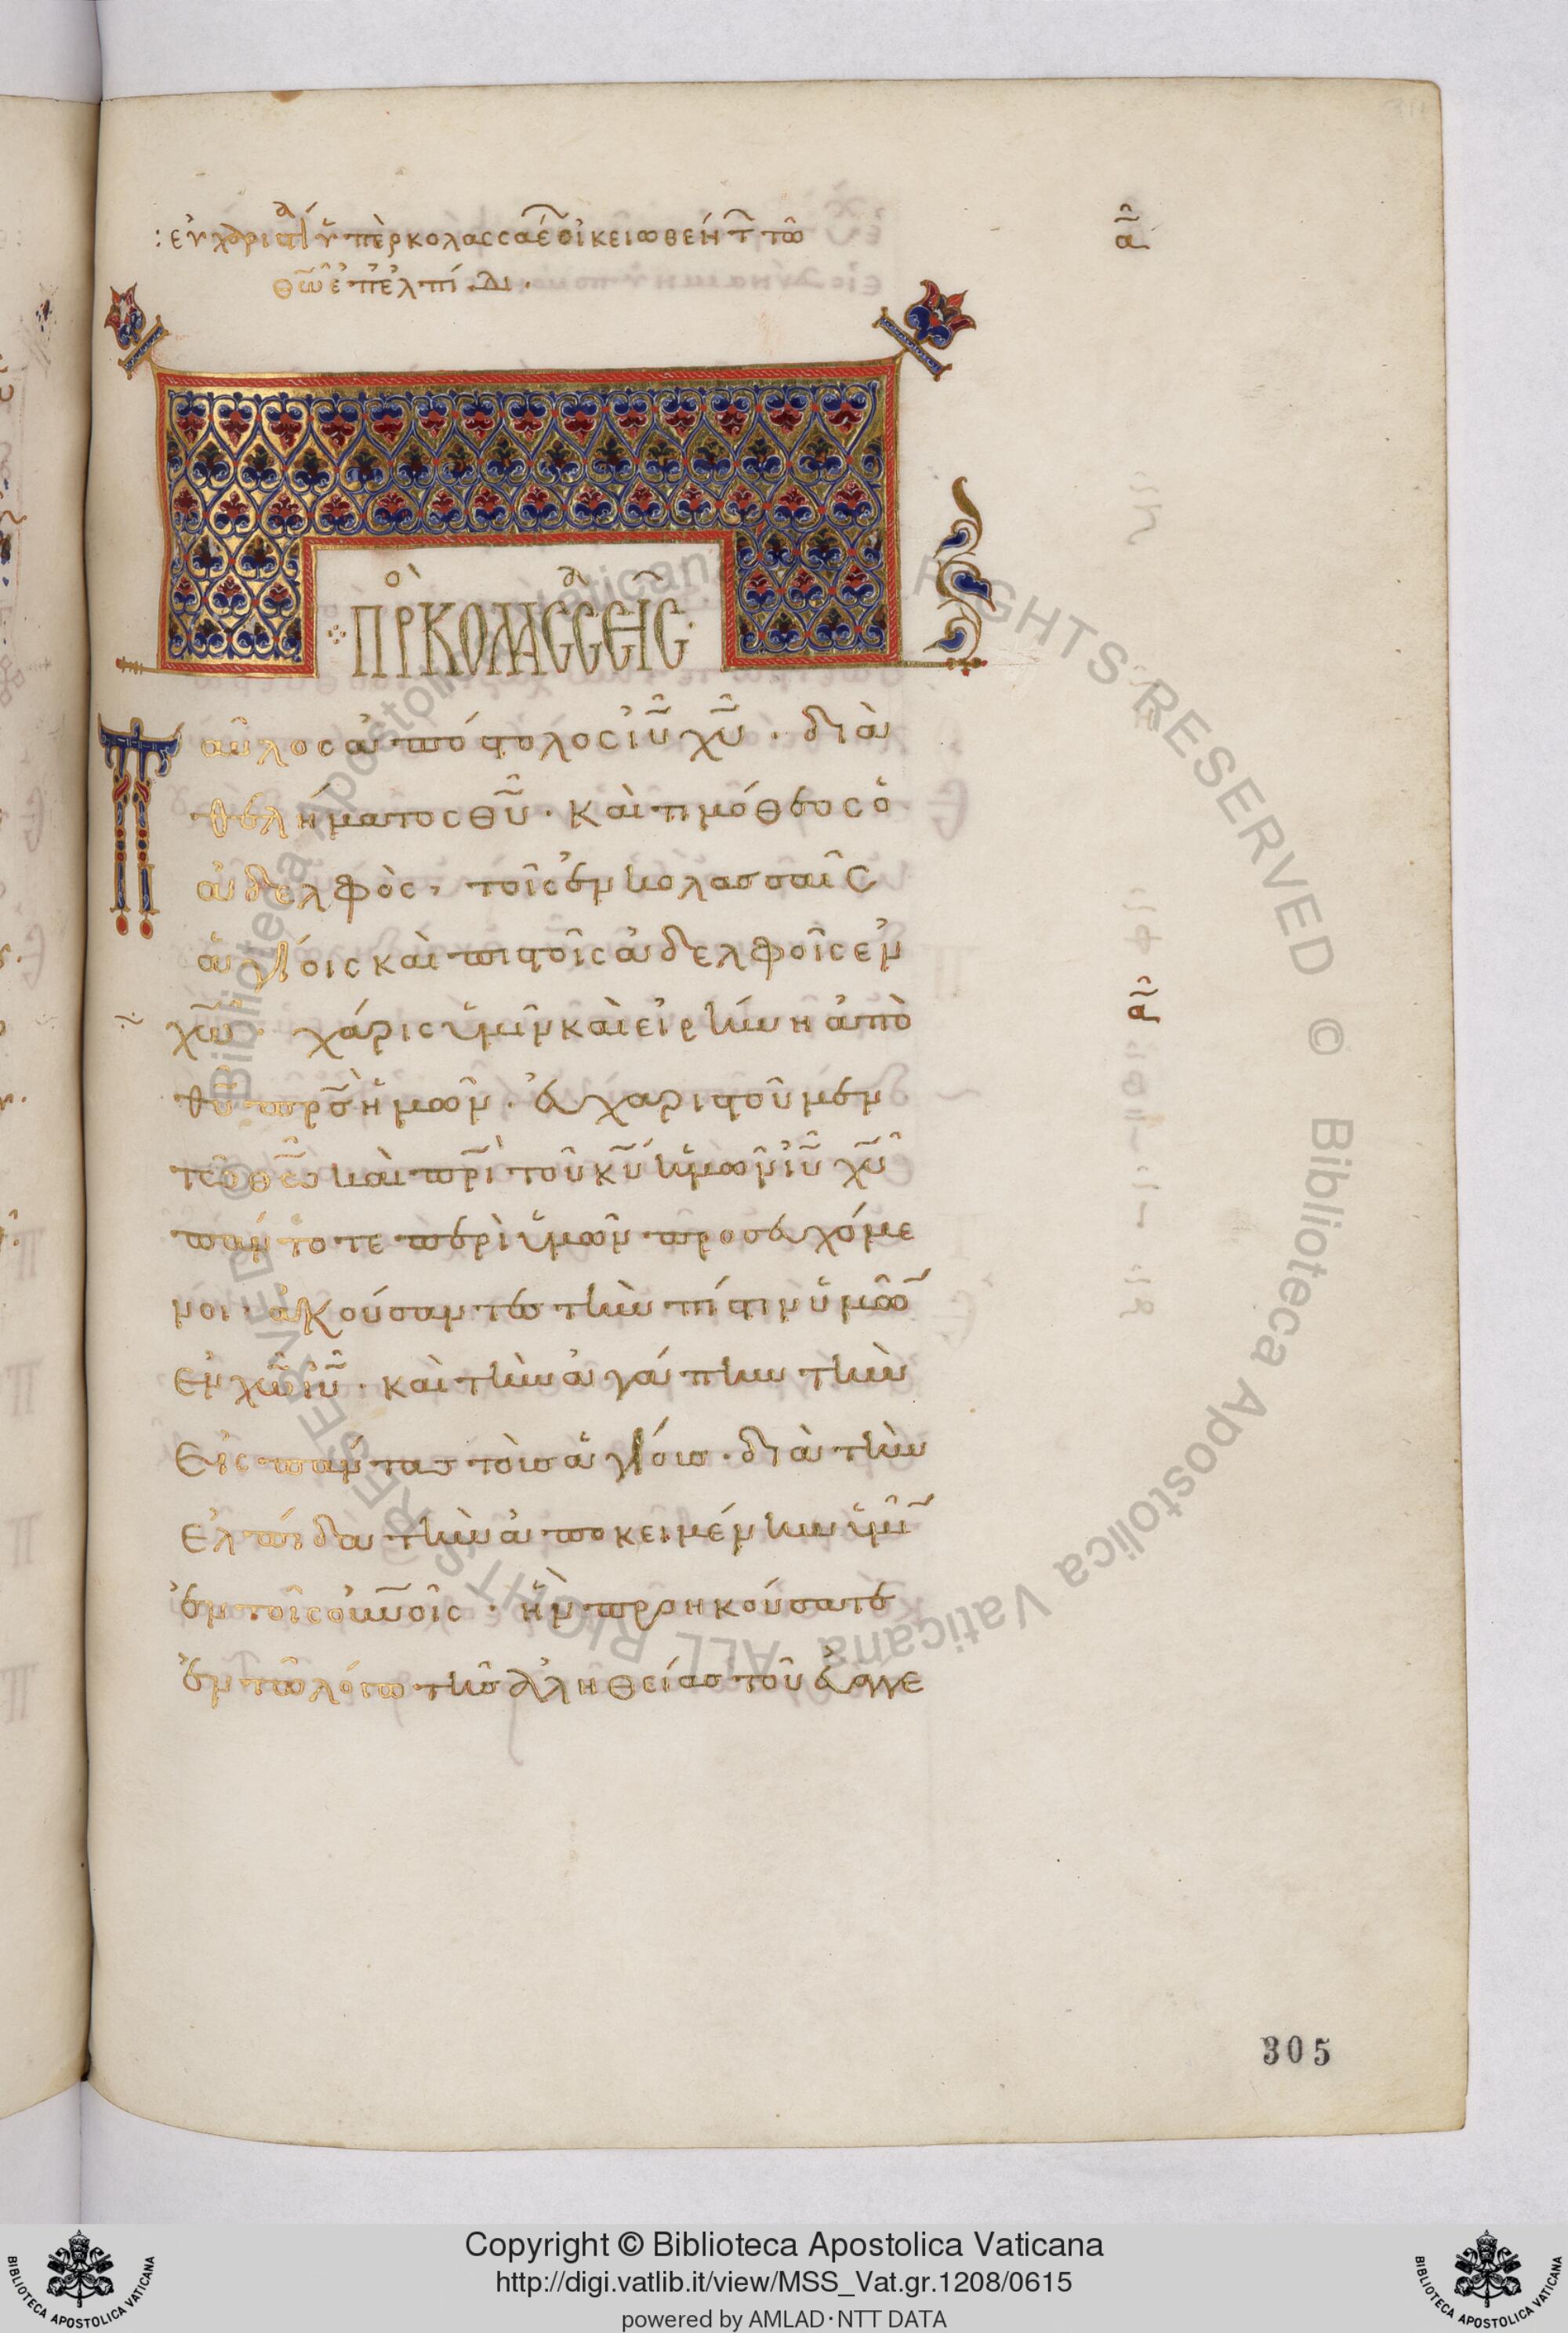 : εὐχαριστία ὑπὲρ κολασσαέ οἰκειωθεῖ τῶ
θω̃ ἐπ' ἐλπίδι.
α
ΠΡ ΚΟΛΑΣΣΑΕΙΣ
Παῦλος ἀπόστολος ιυ̃ χυ̃ · διὰ
θελήματος θυ̃ · καὶ τιμόθεος ὁ
ἀδελφὸς, τοῖς ἐν κολασσαῖς
ἁγίοις καὶ πιστοῖς ἀδελφοῖς ἐν
χω̃ · χάρις ὑμῖν καὶ εἰρήνη ἀπὸ
θυ̃ πρσ̃ ἡμῶν · εὐχαριστοῦμεν
τῶ θω̃ καὶ πρι̃ τοῦ κυ̃ ἡμῶν ιυ̃ χυ̃
πάντοτε περὶ ὑμῶν προσευχόμε
νοι · ἀκούσαντες τὴν πίστιν ὑμῶ
ἐν χω̃ ιυ̃ · καὶ τὴν ἀγάπην τὴν
εἰς πάντας τοὺς ἁγίους · διὰ τὴν
ἐλπίδα τὴν ἀποκειμένην ὑμῖ
ἐν τοῖς οὐνοῖς · ἣν προηκούσατε
ἐν τῶ λόγω τῆς ἀληθείας τοῦ εὐαγγε
305
Copyright © Biblioteca Apostolica Vaticana
http://digi.vatlib.it/view/MSS_Vat.gr.1208/0615
powered by AMLAD·NTT DATA
BIBLIOTECA APOSTOLICA VATICANA
BIBLIOTECA APOSTOLICA VATICANA
© Biblioteca Apostolica Vaticana ALL RIGHTS RESERVED © Biblioteca Apostolica Vaticana ALL RIGHTS RESERVED